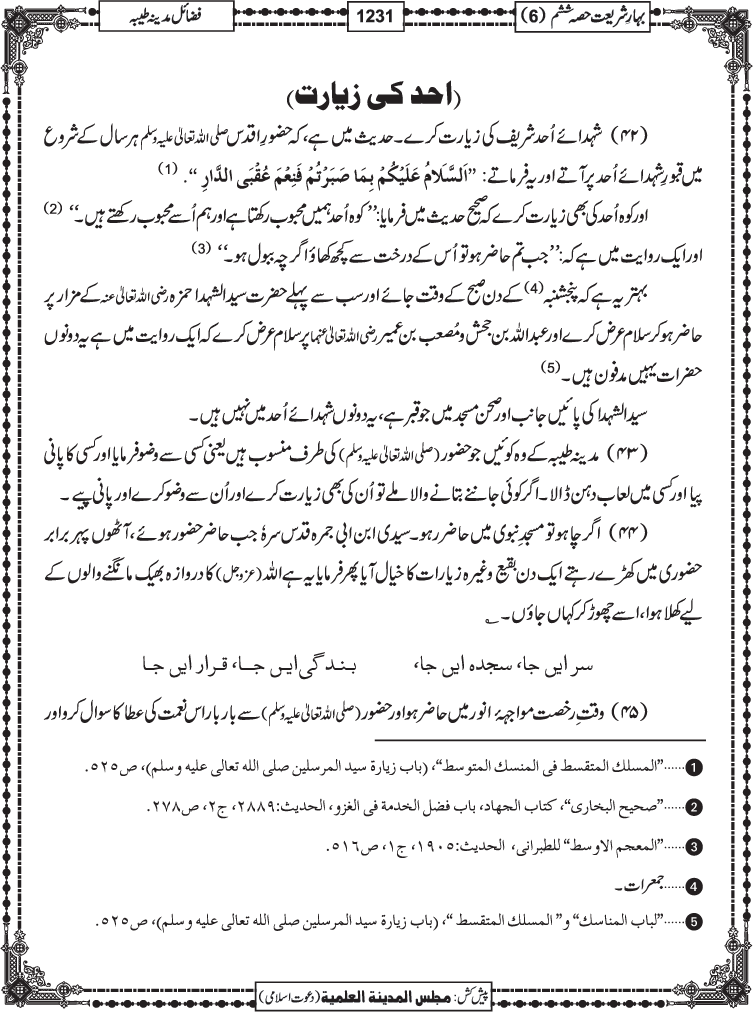 بہارِ شریعت حصہ ششم (6)
1231
فضائل مدینہ طیبہ
(احد کی زیارت)
(۴۲) شہدائے اُحد شریف کی زیارت کرے۔ حدیث میں ہے، کہ حضورِ اقدس صلی اللہ تعالیٰ علیہ وسلم ہر سال کے شروع
میں قبورِ شہدائے اُحد پر آتے اور یہ فرماتے: ”اَلسَّلَامُ عَلَیْکُمْ بِمَا صَبَرْتُمْ فَنِعْمَ عُقْبَی الدَّارِ“. (1)
اور کوہ اُحد کی بھی زیارت کرے کہ صحیح حدیث میں فرمایا: ”کوہ اُحد ہمیں محبوب رکھتا ہے اور ہم اُسے محبوب رکھتے ہیں۔“ (2)
اور ایک روایت میں ہے کہ: ”جب تم حاضر ہو تو اُس کے درخت سے کچھ کھاؤ اگرچہ ببول ہو۔“ (3)
بہتر یہ ہے کہ پنجشنبہ (4) کے دن صبح کے وقت جائے اور سب سے پہلے حضرت سید الشہدا حمزہ رضی اللہ تعالیٰ عنہ کے مزار پر
حاضر ہو کر سلام عرض کرے اور عبداللہ بن جحش و مُصعب بن عمیر رضی اللہ تعالیٰ عنہما پر سلام عرض کرے کہ ایک روایت میں ہے یہ دونوں
حضرات یہیں مدفون ہیں۔ (5)
سید الشہدا کی پائیں جانب اور صحن مسجد میں جو قبر ہے، یہ دونوں شہدائے اُحد میں نہیں ہیں۔
(۴۳) مدینہ طیبہ کے وہ کوئیں جو حضور (صلی اللہ تعالیٰ علیہ وسلم) کی طرف منسوب ہیں یعنی کسی سے وضو فرمایا اور کسی کا پانی
پیا اور کسی میں لعاب دہن ڈالا۔ اگر کوئی جاننے بتانے والا ملے تو اُن کی بھی زیارت کرے اور اُن سے وضو کرے اور پانی پیے۔
(۴۴) اگر چاہو تو مسجدِ نبوی میں حاضر رہو۔ سیدی ابن ابی جمرہ قدس سرہٗ جب حاضر حضور ہوئے، آٹھوں پہر برابر
حضوری میں کھڑے رہتے ایک دن بقیع وغیرہ زیارات کا خیال آیا پھر فرمایا یہ ہے اللہ (عزوجل) کا دروازہ بھیک مانگنے والوں کے
لیے کھلا ہوا، اسے چھوڑ کر کہاں جاؤں۔ ؎
سر ایں جا، سجدہ ایں جا، بندگی ایں جا، قرار ایں جا
(۴۵) وقتِ رخصت مواجہۂ انور میں حاضر ہو اور حضور (صلی اللہ تعالیٰ علیہ وسلم) سے بار بار اس نعمت کی عطا کا سوال کرو اور
1......”المسلك المتقسط فی المنسك المتوسط“، (باب زیارة سید المرسلین صلی الله تعالی علیه وسلم)، ص٥٢٥.
2......”صحیح البخاری“، کتاب الجهاد، باب فضل الخدمة فی الغزو، الحدیث:٢٨٨٩، ج٢، ص٢٧٨.
3......”المعجم الاوسط“ للطبرانی، الحدیث:١٩٠٥، ج١، ص٥١٦.
4......جمعرات۔
5......”لباب المناسك“ و”المسلك المتقسط“، (باب زیارة سید المرسلین صلی الله تعالی علیه وسلم)، ص٥٢٥.
پیش کش: مجلس المدینة العلمیة (دعوتِ اسلامی)